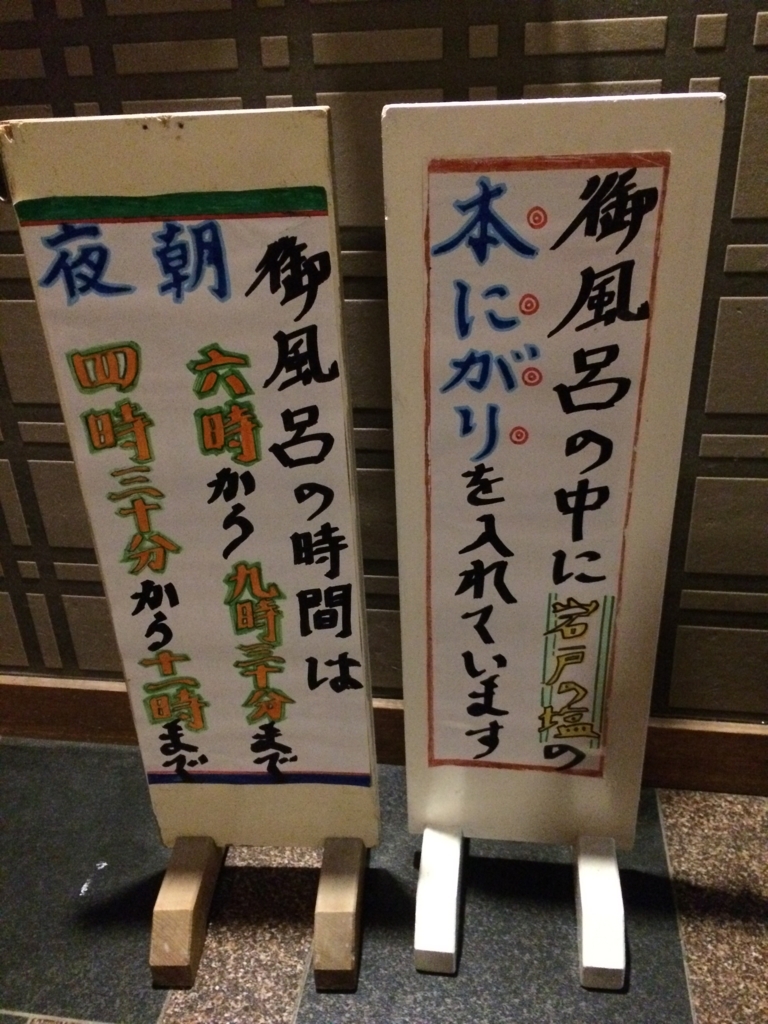 御風呂の中に岩戸の塩の
本にがりを入れています
御風呂の時間は
朝 六時から九時三十分まで
夜 四時三十分から十一時まで